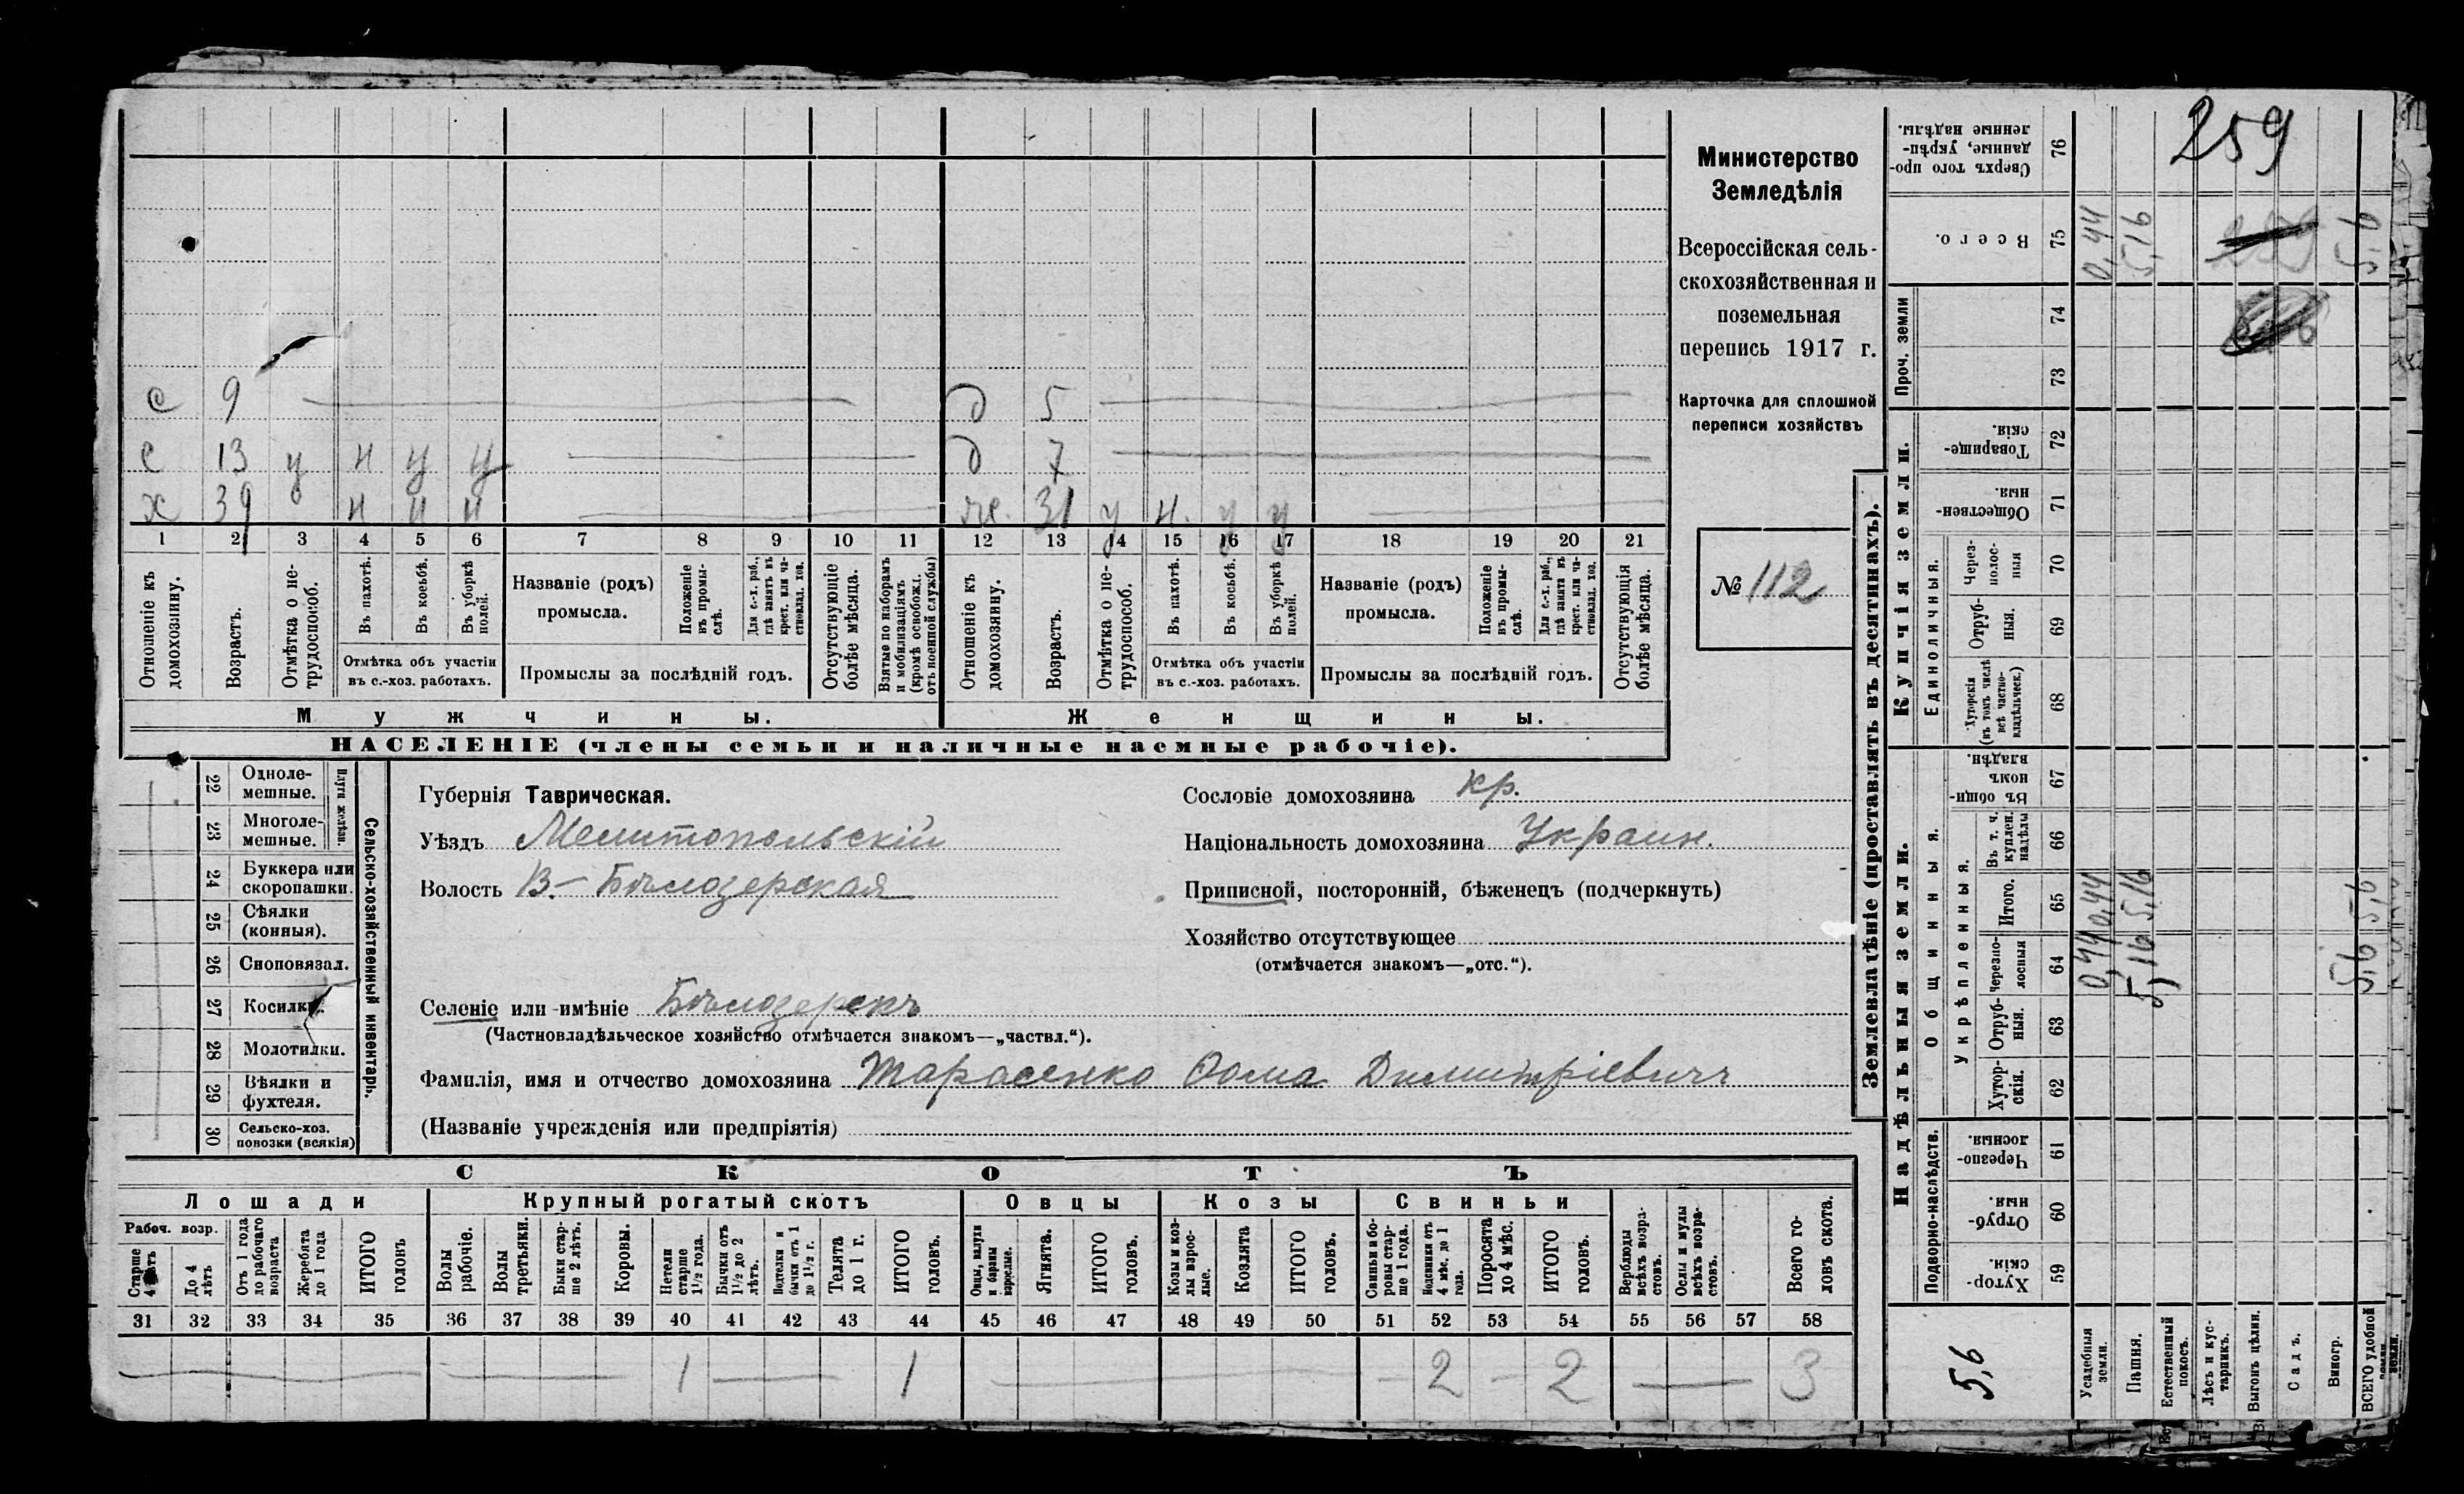 259
Министерство
Земледѣлія
Всероссійская сель-
скохозяйственная и
поземельная
перепись 1917 г.
Карточка для сплошной
переписи хозяйствъ
№ 112
с 9 д 5
с 13 у н у у д 7
х 39 н н н ж. 31 у н. у у
1 2 3 4 5 6 7 8 9 10 11 12 13 14 15 16 17 18 19 20 21
Отношеніе къ домохозяину.
Возрастъ.
Отмѣтка о не-трудоспособ.
Въ пахотѣ.
Въ косьбѣ.
Въ уборкѣ полей.
Отмѣтка объ участіи
въ с.-хоз. работахъ.
Названіе (родъ)
промысла.
Положеніе въ промы-слѣ.
Для с.-х. раб., гдѣ занятъ въ крест. или ча-стновлад. хоз.
Промыслы за послѣдній годъ.
Отсутствующіе болѣе мѣсяца.
Взятые по наборамъ и мобилизаціямъ (кромѣ освобожд. отъ военной службы)
Отношеніе къ домохозяину.
Возрастъ.
Отмѣтка о не-трудоспособ.
Въ пахотѣ.
Въ косьбѣ.
Въ уборкѣ полей.
Отмѣтка объ участіи
въ с.-хоз. работахъ.
Названіе (родъ)
промысла.
Положеніе въ промы-слѣ.
Для с.-х. раб., гдѣ занятъ въ крест. или ча-стновлад. хоз.
Промыслы за послѣдній годъ.
Отсутствующія болѣе мѣсяца.
Мужчины. Женщины.
НАСЕЛЕНІЕ (члены семьи и наличные наемные рабочіе).
22 Одноле-мешные.
23 Многоле-мешные.
Плуги желѣзн.
24 Буккера или скоропашки.
25 Сѣялки (конныя).
26 Сноповязал.
27 Косилки.
28 Молотилки.
29 Вѣялки и фухтеля.
30 Сельско-хоз. повозки (всякія)
Сельско-хозяйственный инвентарь.
Губернія Таврическая.
Уѣздъ Мелитопольскій
Волость В-Бѣлозерская
Селеніе или имѣніе Бѣлозерскъ
(Частновладѣльческое хозяйство отмѣчается знакомъ—„частвл.“).
Фамилія, имя и отчество домохозяина Тарасенко Ѳома Димитріевичъ
(Названіе учрежденія или предпріятія)
Сословіе домохозяина кр.
Національность домохозяина Украин.
Приписной, посторонній, бѣженецъ (подчеркнуть)
Хозяйство отсутствующее
(отмѣчается знакомъ—„отс.“).
СКОТЪ
Лошади Крупный рогатый скотъ Овцы Козы Свиньи
Рабоч. возр.
Старше 4 лѣтъ
До 4 лѣтъ
Отъ 1 года до рабочаго возраста
Жеребята до 1 года
ИТОГО головъ
Волы рабочіе.
Волы третьяки.
Быки стар-ше 2 лѣтъ.
Коровы.
Нетели старше 1½ года.
Бычки отъ 1½ до 2 лѣтъ.
Подтелки и бычки отъ 1 до 1½ г.
Телята до 1 г.
ИТОГО головъ.
Овцы, валухи и бараны взрослые.
Ягнята.
ИТОГО головъ.
Козы и коз-лы взрос-лые.
Козлята
ИТОГО головъ.
Свиньи и бо-ровы стар-ше 1 года.
Подсвинки отъ 4 мѣс. до 1 года.
Поросята до 4 мѣс.
ИТОГО головъ.
Верблюды всѣхъ возра-стовъ.
Ослы и мулы всѣхъ возра-стовъ.
Всего го-ловъ скота.
31 32 33 34 35 36 37 38 39 40 41 42 43 44 45 46 47 48 49 50 51 52 53 54 55 56 57 58
1 1 2 2 3
Землевладѣніе (проставлять въ десятинахъ).
Надѣльныя земли.
Подворно-наслѣдств.
Хутор-скія. 59
Отруб-ныя. 60
Черезпо-лосныя. 61
Общинныя.
Укрѣпленныя.
Хутор-скія. 62
Отруб-ныя. 63
Черезпо-лосныя 64
Итого. 65
Въ т. ч. куплен. надѣлы 66
Въ общи-номъ владѣн. 67
Купчія земли.
Единоличныя.
Хуторскія (въ томъ числѣ всѣ частно-владѣльческ.) 68
Отруб-ныя. 69
Через-полос-ныя 70
Обществен-ныя. 71
Товарище-скія. 72
Проч. земли
73 74
Всего. 75
Сверхъ того про-данные, укрѣп-ленные надѣлы. 76
5,6
Усадебныя земли. 0,44 0,44 0,44
Пашня. 5,16 5,16 5,16
Естественный покосъ.
Лѣсъ и кус-тарникъ.
Выгонъ цѣлин.
Садъ.
Виногр.
ВСЕГО удобной земли. 5,6 5,6 5,6